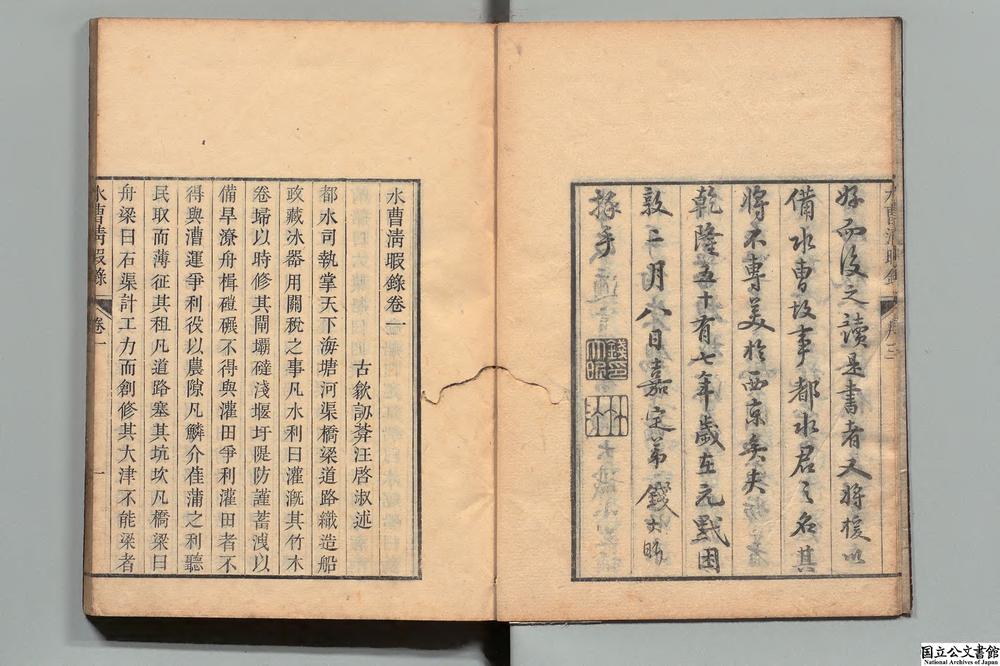 好而後之讀是書者又將援以
備水曹故事都水君之名其
將不專美於西京矣夫
乾隆五十有七年歲在元黓困
敦二月八日嘉定弟錢大昕
拜手
水曹清暇錄
水曹淸暇錄卷一
古歙訒葊汪啓淑述
都水司執掌天下海塘河渠橋梁道路織造船
政藏冰器用關稅之事凡水利曰灌漑其竹木
卷埽以時修其閘壩䃮淺堰圩隄防謹蓄洩以
備旱潦舟楫磑碾不得與灌田爭利灌田者不
得與漕運爭利役以農隙凡鱗介萑蒲之利聽
民取而薄征其租凡道路塞其坑坎凡橋梁曰
舟梁曰石渠計工力而創修其大津不能梁者
水曹淸暇錄
卷一
一
国立公文書館
National Archives of Japan